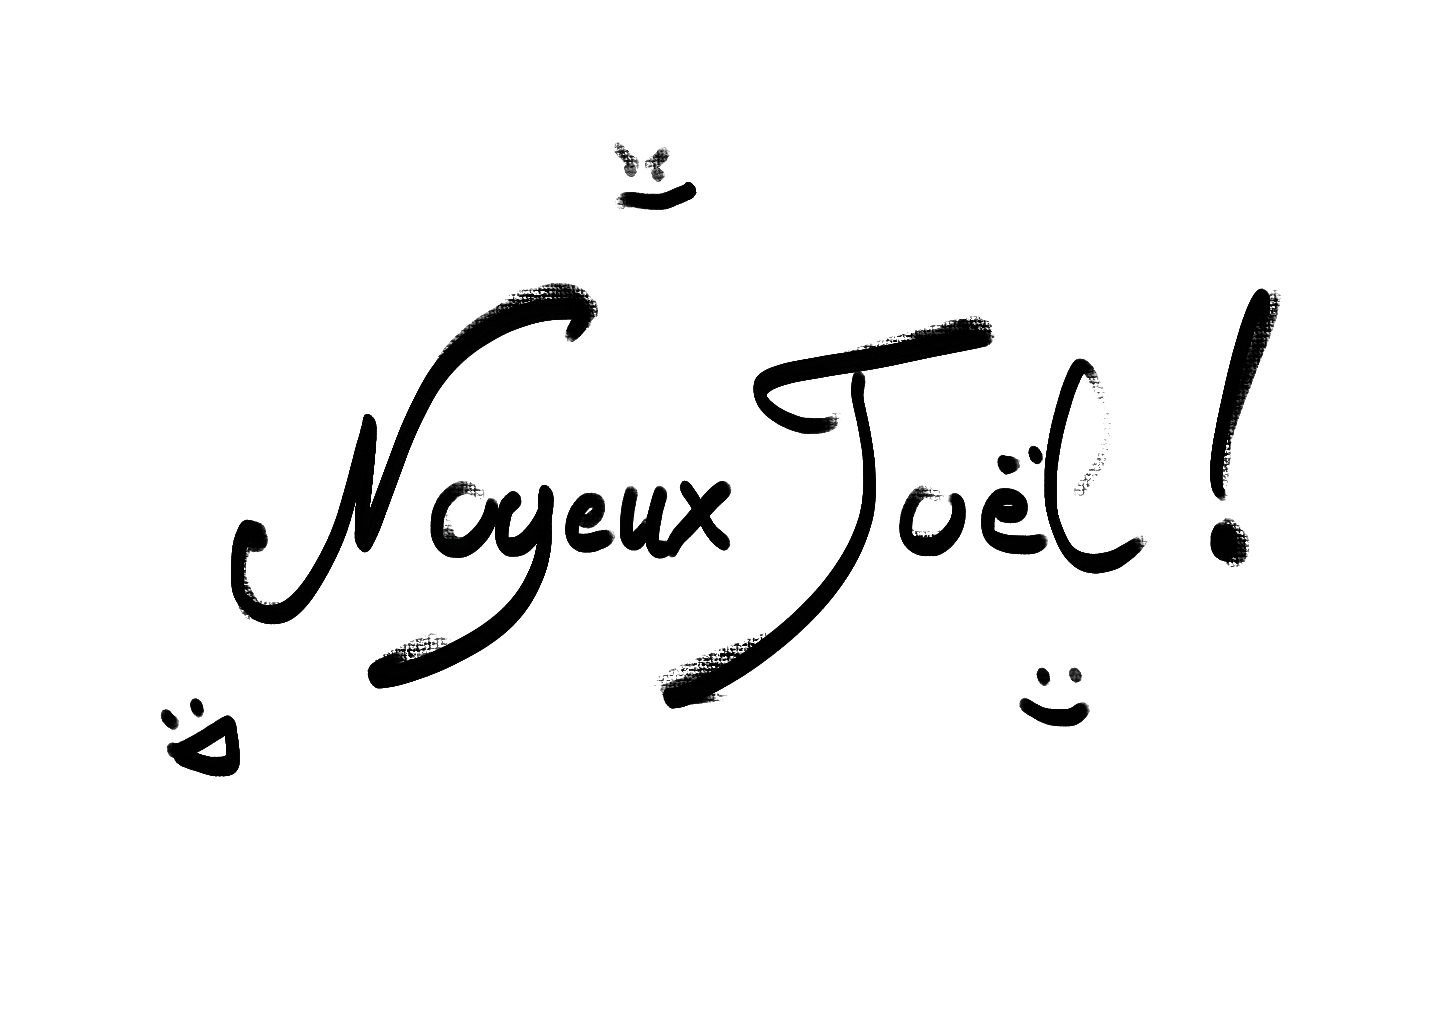 Noyeux Joël !